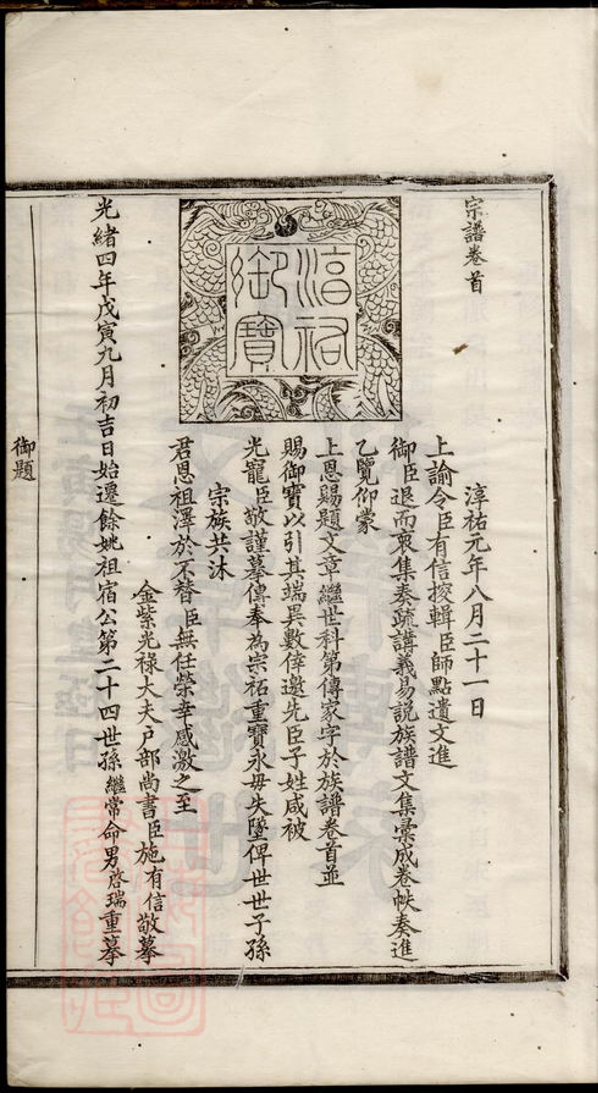 宗譜卷首
淳祐御寶
淳祐元年八月二十一日
上諭令臣有信搜輯臣師點遺文進
御臣退而裒集奏疏講義易説族譜文集彙成卷帙奏進
乙覽仰蒙
上恩賜題文章繼世科第傳家字於族譜卷首並
賜御寶以引其端異數倖邀先臣子姓咸被
光寵臣敬謹摹傳奉為宗祏重寶永毋失墜俾世世子孫
宗族共沐
君恩祖澤於不替臣無任榮幸感激之至
金紫光祿大夫戶部尚書臣施有信敬摹
光緒四年戊寅九月初吉日始遷餘姚祖宿公第二十四世孫繼常命男啓瑞重摹
御題